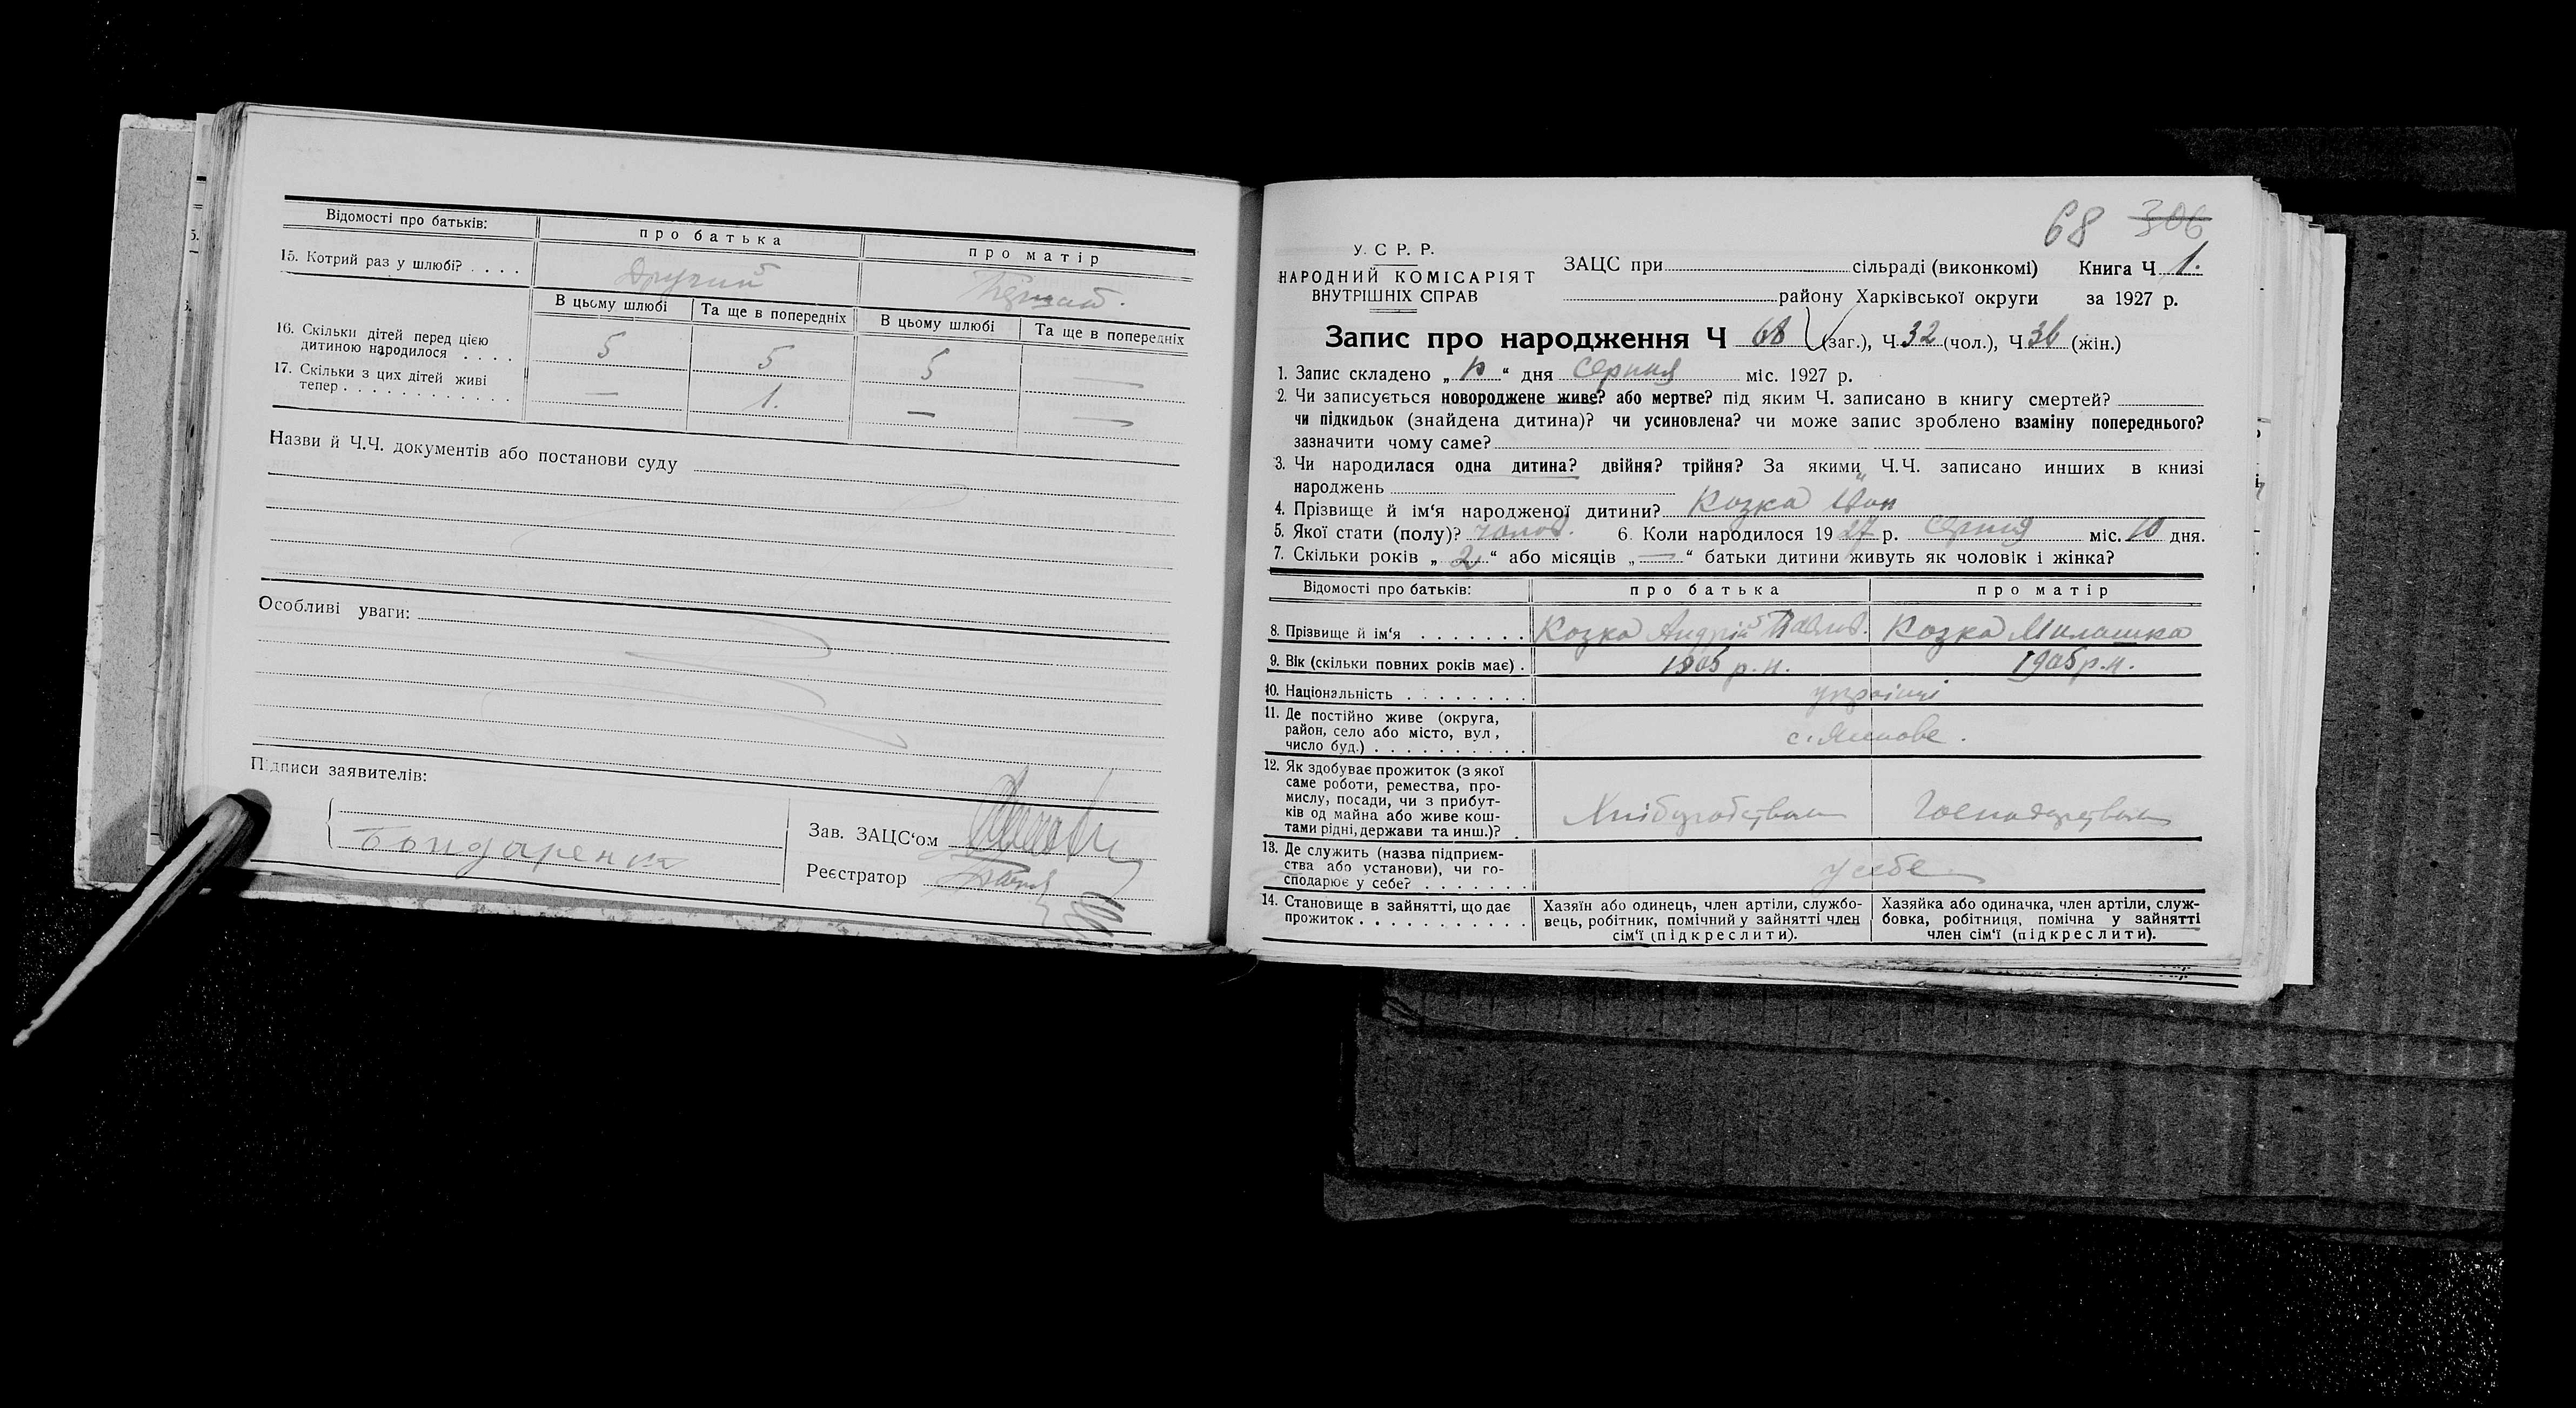 Відомості про батьків: про батька про матір
15. Котрий раз у шлюбі? . . . . Другий Перший.
В цьому шлюбі Та ще в попередніх В цьому шлюбі Та ще в попередніх
16. Скільки дітей перед цією
дитиною народилося . . . . 5 5 5 —
17. Скільки з цих дітей живі
тепер . . . . . . . . . . . . — 1. — —
Назви й Ч.Ч. документів або постанови суду
Особливі уваги:
Підписи заявителів:
Бондаренко
Зав. ЗАЦС'ом
Реєстратор
68 306
У. С Р. Р.
НАРОДНИЙ КОМІСАРІЯТ
ВНУТРІШНІХ СПРАВ
ЗАЦС при сільраді (виконкомі) Книга Ч 1.
району Харківської округи за 1927 р.
Запис про народження Ч 68 (заг.), Ч 32 (чол.), Ч 36 (жін.)
1. Запис складено „ “ дня Серпня міс. 1927 р.
2. Чи записується новороджене живе? або мертве? під яким Ч. записано в книгу смертей?
чи підкидьок (знайдена дитина)? чи усиновлена? чи може запис зроблено взаміну попереднього?
зазначити чому саме?
3. Чи народилася одна дитина? двійня? трійня? За якими Ч.Ч. записано инших в книзі
народжень
4. Прізвище й ім'я народженої дитини? Козка
5. Якої стати (полу)? чолов. 6. Коли народилося 19 27 р. Серпня міс. 10 дня.
7. Скільки років „ 2 “ або місяців „ — “ батьки дитини живуть як чоловік і жінка?
Відомості про батьків: про батька про матір
8. Прізвище й ім'я . . . . . . . Козка Андрій Павлов. Козка Милашка
9. Вік (скільки повних років має) . 1905 р. н. 1905 р. н.
10. Національність . . . . . . . . українці
11. Де постійно живе (округа,
район, село або місто, вул ,
число буд.) . . . . . . . . . . с.
12. Як здобуває прожиток (з якої
саме роботи, ремества, про-
мислу, посади, чи з прибут-
ків од майна або живе кош-
тами рідні, держави та инш.)? . Хліборобством Господарством
13. Де служить (назва підприєм-
ства або установи), чи го-
сподарює у себе? . . . . . . . у себе
14. Становище в зайнятті, що дає
прожиток . . . . . . . . . . .
Хазяїн або одинець, член артіли, службо-
вець, робітник, помічний у зайнятті член
сім'ї (підкреслити).
Хазяйка або одиначка, член артіли, служ-
бовка, робітниця, помічна у зайнятті
член сім'ї (підкреслити).